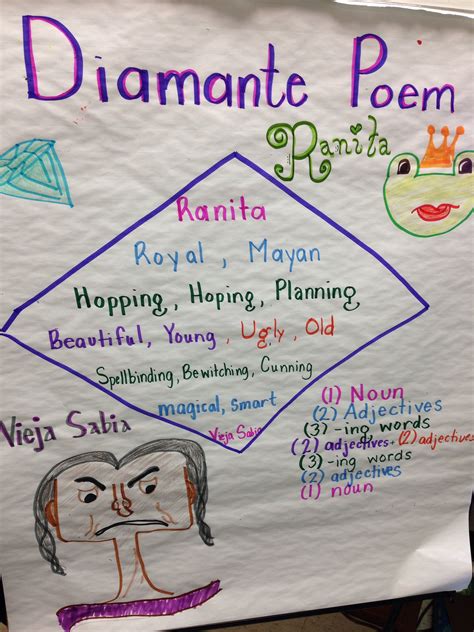 Diamante Poem
Ranita
Ranita
Royal, Mayan
Hopping, Hoping, Planning
Beautiful, Young, Ugly, Old
Spellbinding, Bewitching, Cunning
magical, smart
Vieja Sabia
Vieja Sabia
(1) Noun
(2) Adjectives
(3) -ing words
(2) adjectives - (2) adjectives
(3) -ing words
(2) adjectives
(1) noun